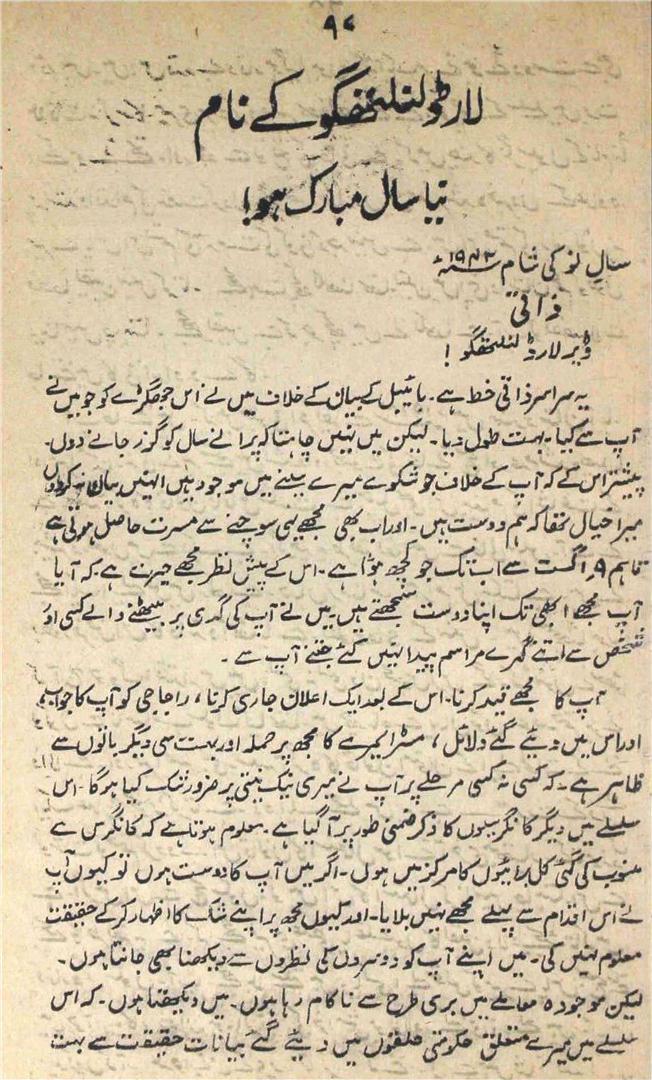 ۹۷
لارڈ لنلتھگو کے نام
نیا سال مبارک ہو!
سالِ نو کی شام ۱۹۴۳ء
ذاتی
ڈیر لارڈ لنلتھگو !
یہ سراسر ذاتی خط ہے۔ بائیبل کے بیان کے خلاف میں نے اس جھگڑے کو جو میں نے
آپ سے کیا۔ بہت طول دیا۔ لیکن میں نہیں چاہتا کہ پرانے سال کو گزر جانے دوں۔
پیشتر اس کے کہ آپ کے خلاف جو شکوے میرے سینے میں موجود ہیں انہیں بیان نہ کروں
میرا خیال تھا کہ ہم دوست ہیں۔ اور اب بھی مجھے یہی سوچنے سے مسرت حاصل ہوتی ہے
تاہم ۹ اگست سے اب تک جو کچھ ہوُا ہے۔ اس کے پیش نظر مجھے حیرت ہے۔ کہ آیا
آپ مجھے ابھی تک اپنا دوست سمجھتے ہیں میں نے آپ کی گدی پر بیٹھنے والے کسی اور
شخص سے اتنے گہرے مراسم پیدا نہیں کئے جتنے آپ سے ۔
آپ کا مجھے قید کرنا۔ اس کے بعد ایک اعلان جاری کرنا ، راجا جی کو آپ کا جواب
اور اس میں دیئے گئے دلائل ، مسٹر ایمرے کا مجھ پر حملہ اور بہت سی دیگر باتوں سے
ظاہر ہے۔ کہ کسی نہ کسی مرحلے پر آپ نے میری نیک نیتی پر ضرور شک کیا ہوگا۔ اس
سلسلے میں دیگر کانگرسیوں کا ذکر ضمنی طور پر آگیا ہے۔ معلوم ہوتا ہے کہ کانگرس سے
منسوب کی گئی کل برائیوں کا مرکز میں ہوں۔ اگر میں آپ کا دوست ہوں تو کیوں آپ
نے اس اقدام سے پہلے مجھے نہیں بلایا۔ اور کیوں مجھ پر اپنے شک کا اظہار کر کے حقیقت
معلوم نہیں کی۔ میں اپنے آپ کو دوسروں کی نظروں سے دیکھنا بھی جانتا ہوں۔
لیکن موجودہ معاملے میں بری طرح سے ناکام رہا ہوں۔ میں دیکھتا ہوں۔ کہ اس
سلسلے میں میرے متعلق حکومتی حلقوں میں دیئے گئے بیانات حقیقت سے بہت